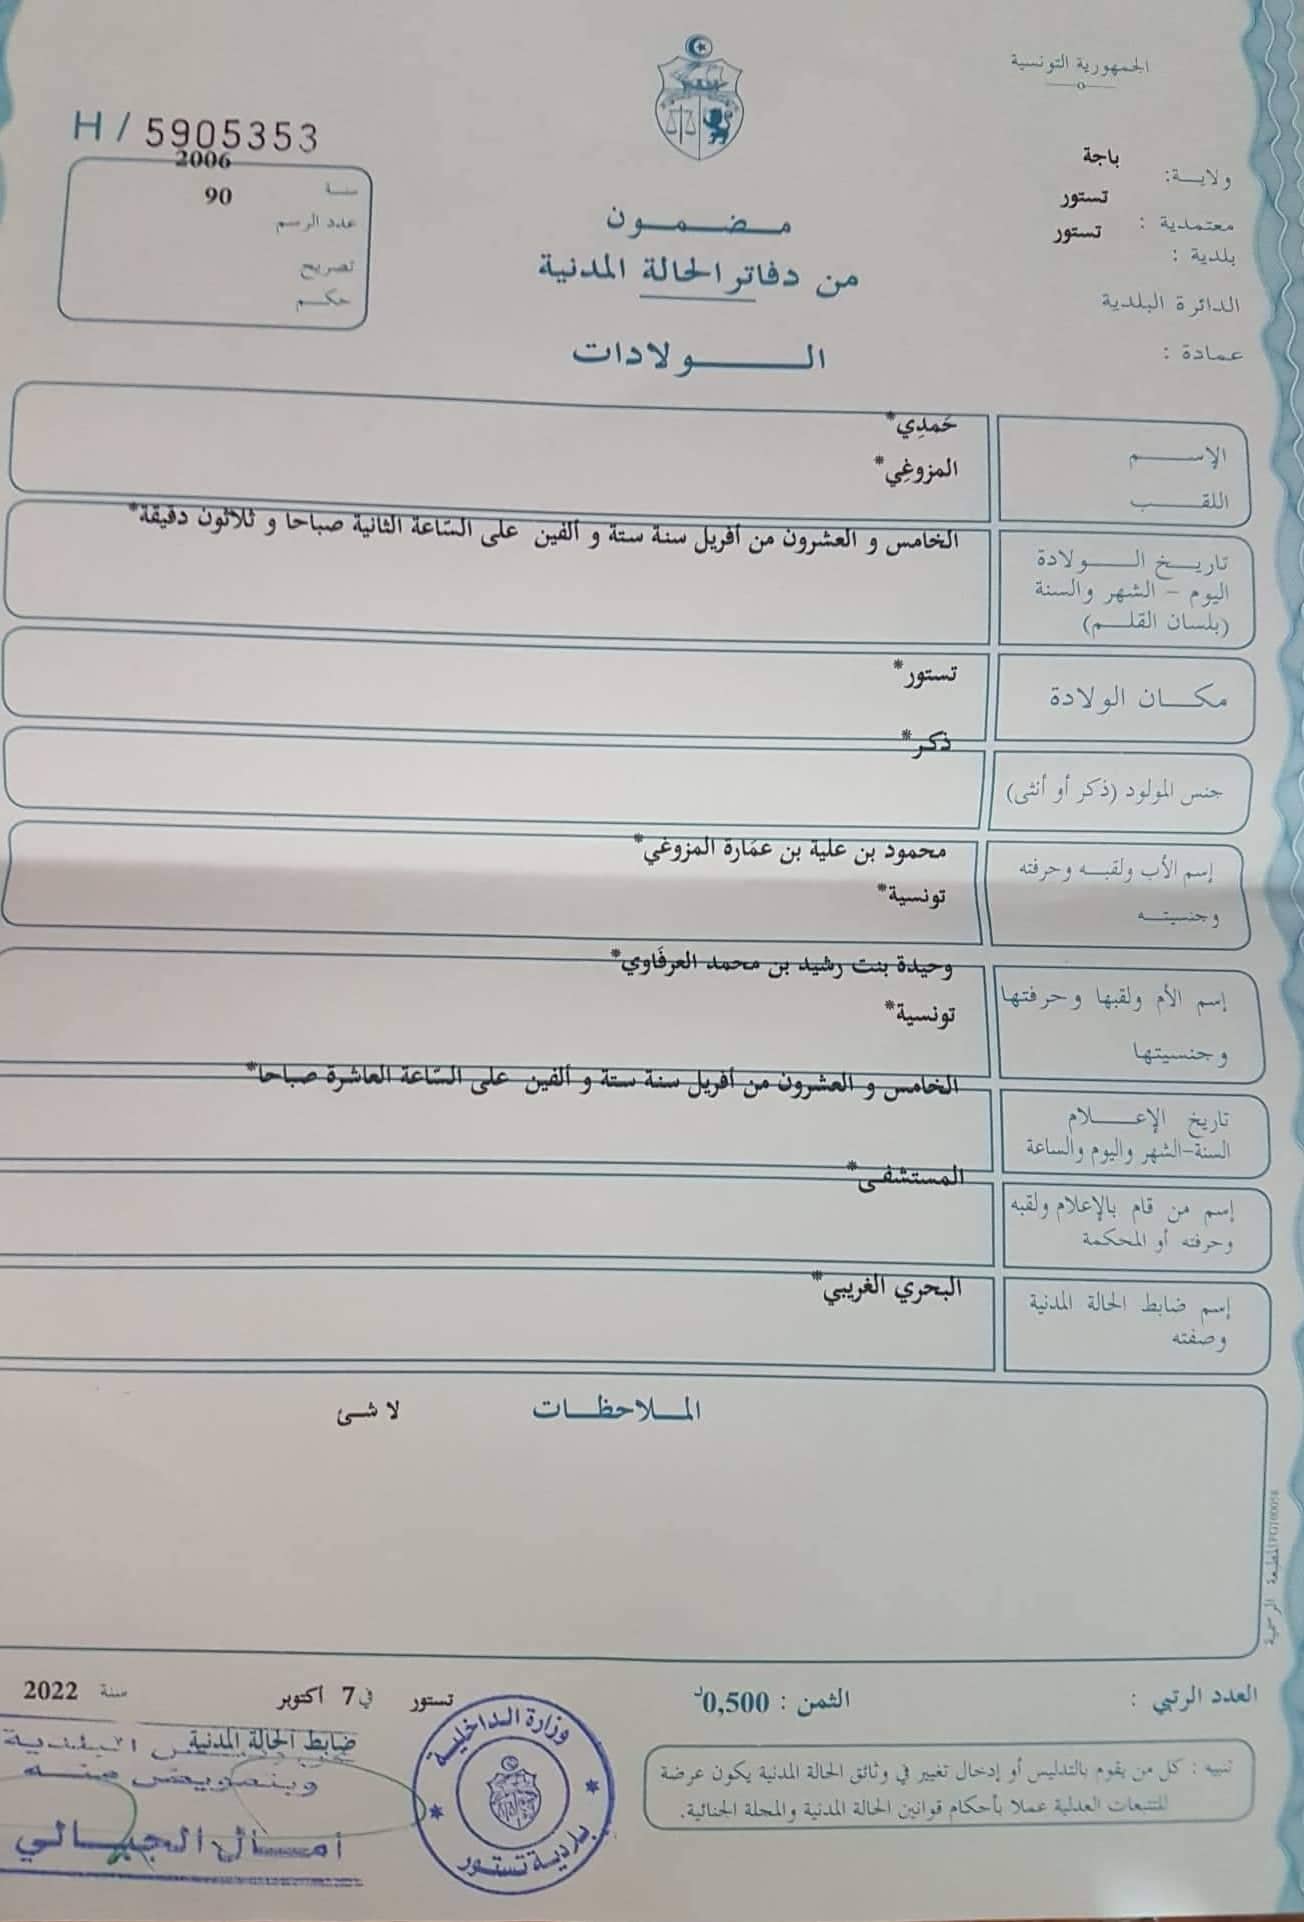 الجمهورية التونسية
ولاية: باجة
معتمدية : تستور
بلدية : تستور
الدائرة البلدية
عمادة :
H / 5905353
سنة 2006
عدد الرسم 90
تصريح
حكم
مضمون
من دفاتر الحالة المدنية
الولادات
الإسم حَمدِي*
اللقب المزوغِي*
تاريخ الولادة
اليوم - الشهر والسنة
(بلسان القلم)
الخامس و العشرون من أفريل سنة ستة و ألفين على السّاعة الثانية صباحا و ثلاثون دقيقة*
مكان الولادة
تستور*
جنس المولود (ذكر أو أنثى)
ذكر*
إسم الأب ولقبه وحرفته
وجنسيته
محمود بن علية بن عمّارة المزوغي*
تونسية*
إسم الأم ولقبها وحرفتها
وجنسيتها
وحيدة بنت رشيد بن محمد العرفَاوي*
تونسية*
تاريخ الإعلام
السنة-الشهر واليوم والساعة
الخامس و العشرون من أفريل سنة ستة و ألفين على السّاعة العاشرة صباحا*
إسم من قام بالإعلام ولقبه
وحرفته أو المحكمة
المستشفى*
إسم ضابط الحالة المدنية
وصفته
البحري الغريبي*
الملاحظات
لا شئ
المطبعة الرسمية
العدد الرتبي :
الثمن : 0,500د
تستور في 7 أكتوبر سنة 2022
ضابط الحالة المدنية
وبتفويض منه
أمال الجبالي
وزارة الداخلية
بلدية تستور
تنبيه : كل من يقوم بالتدليس أو إدخال تغيير في وثائق الحالة المدنية يكون عرضة
للتتبعات العدلية عملا بأحكام قوانين الحالة المدنية والمجلة الجنائية.